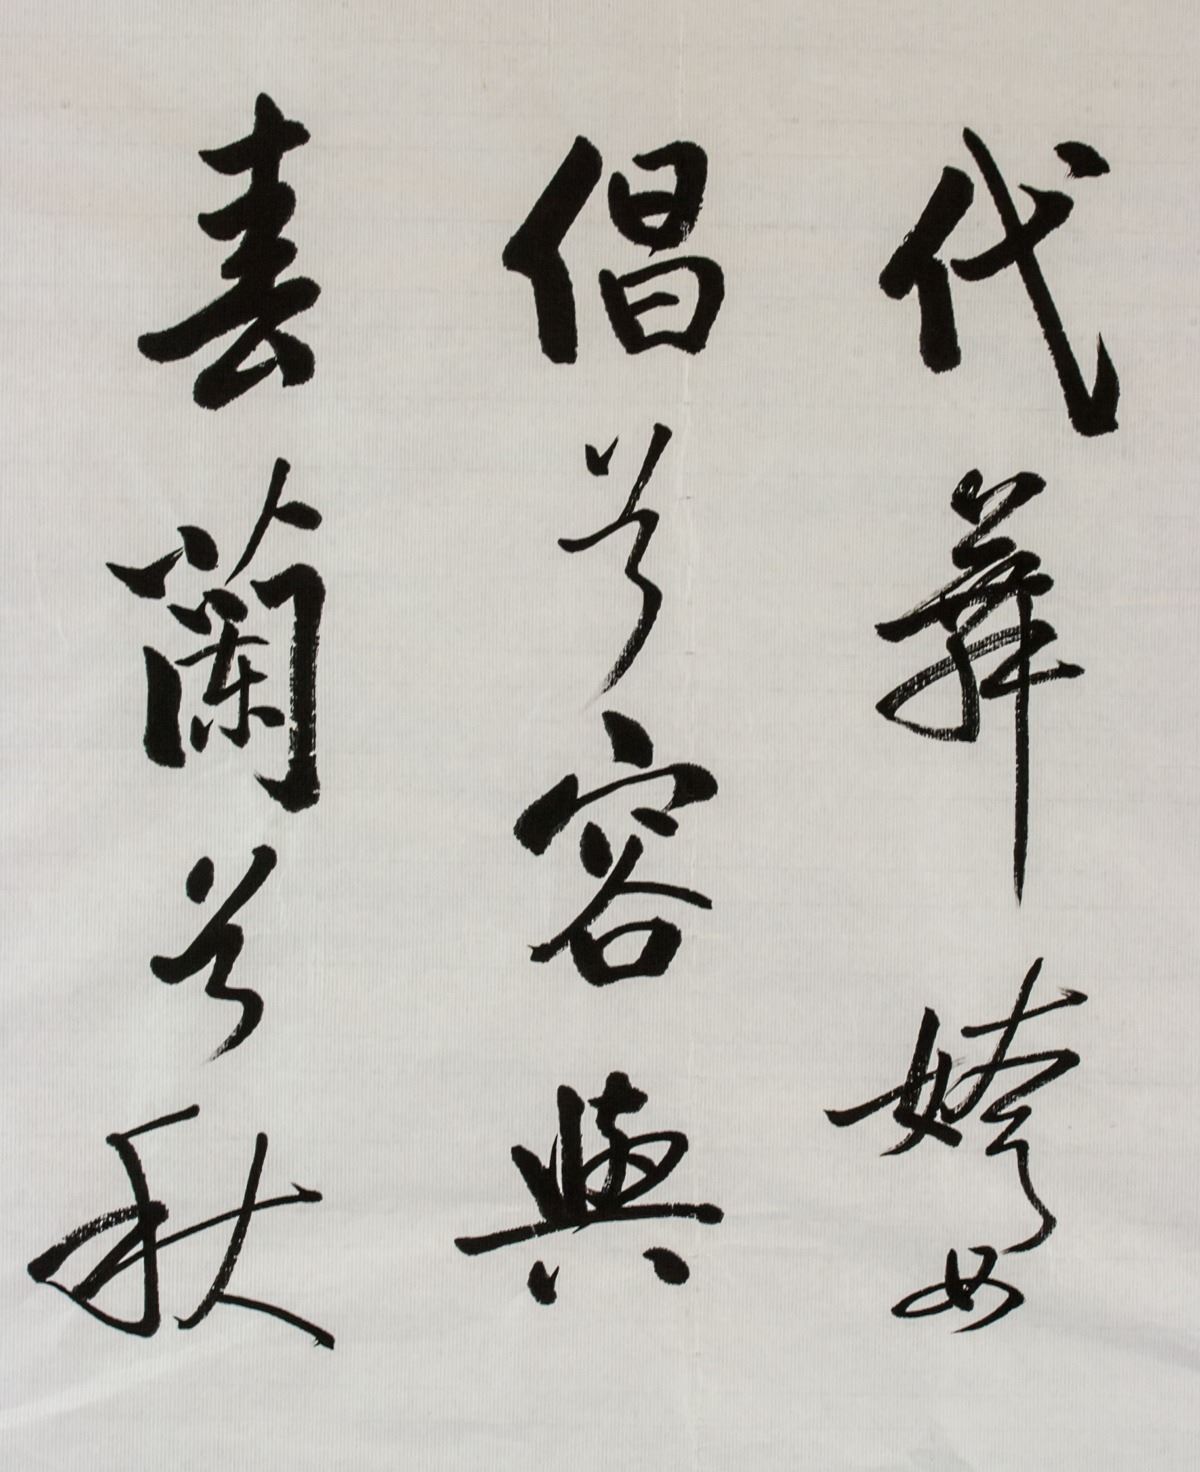 代舞姱女
倡兮容與
春蘭兮秋